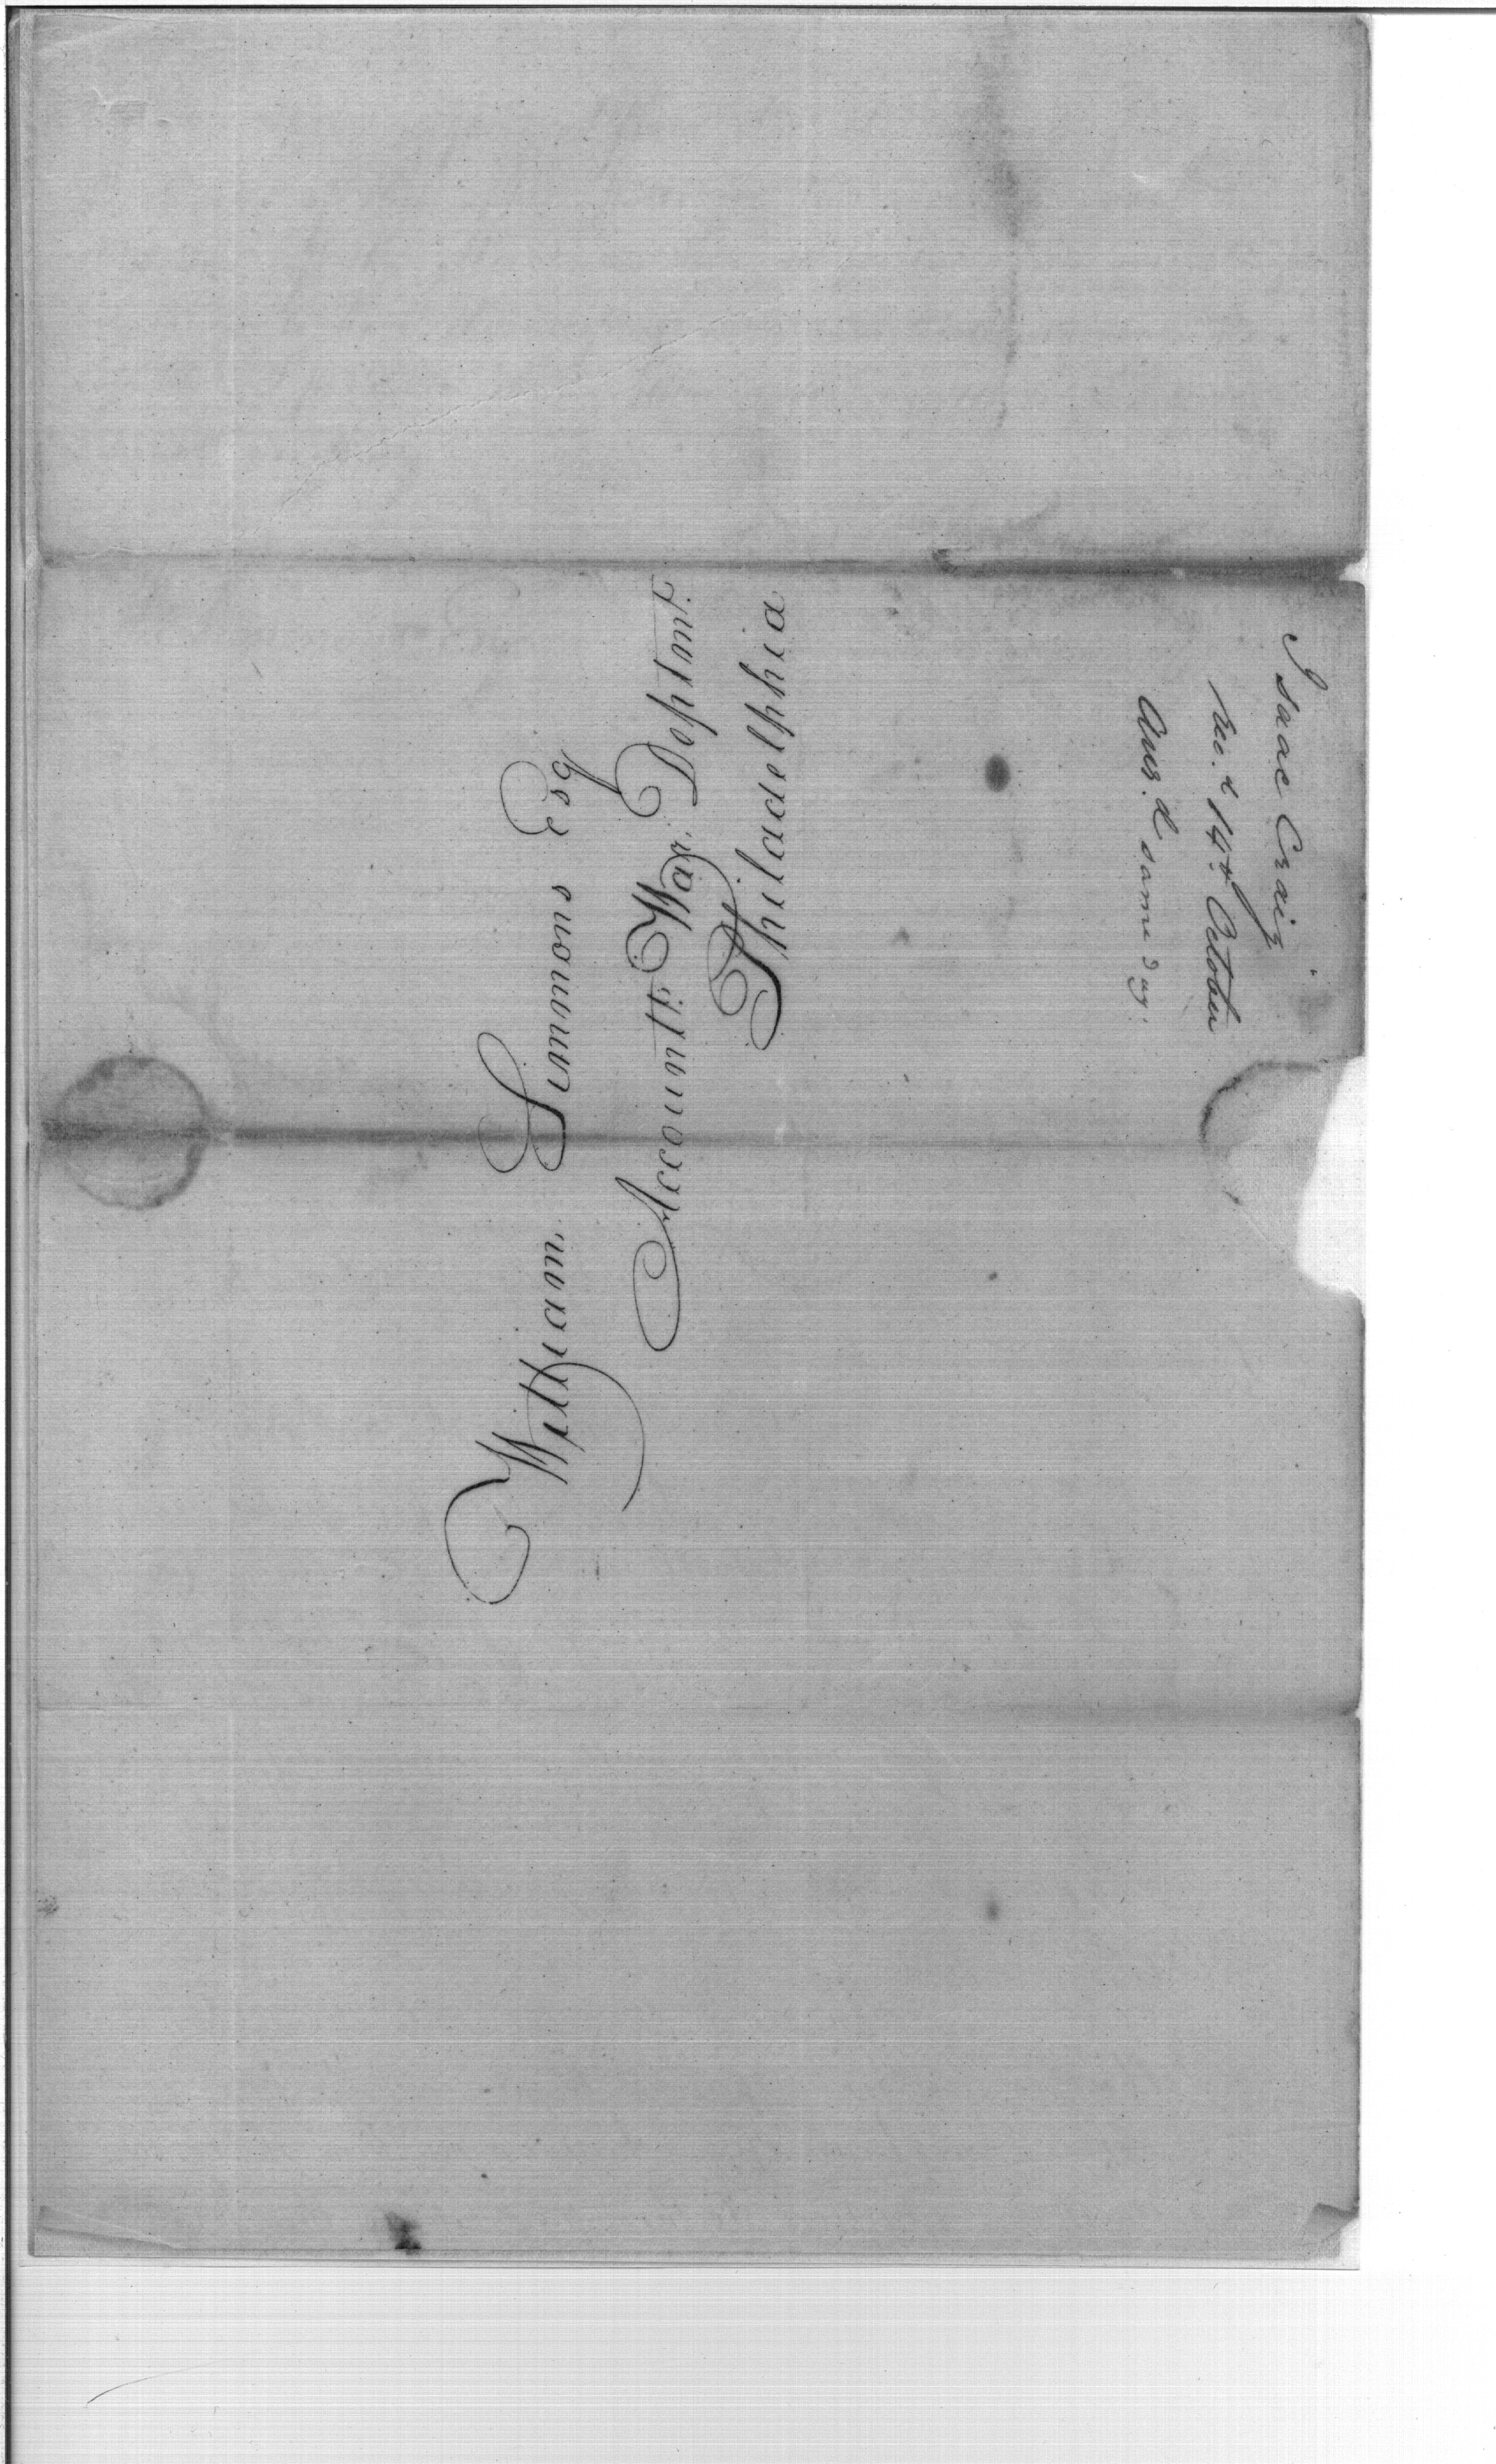 William Simmons Esq
Accountt. War Deptmt.
Philadelphia
Isaac Craig
Rec.d 14th October
Ans.d same day.